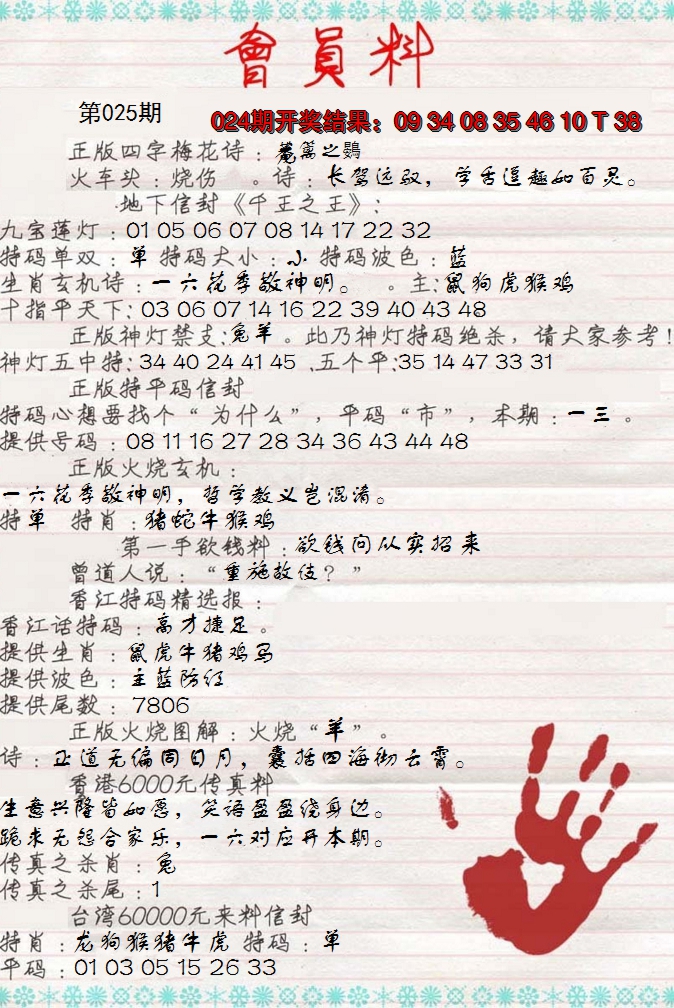 會員料
第025期
024期开奖结果：09 34 08 35 46 10 T 38
正版四字梅花诗：鸯篱之鷃
火车头：烧伤 。诗：长驾远驭，学舌逗趣如百灵。
地下信封《千王之王》：
九宝莲灯：01 05 06 07 08 14 17 22 32
特码单双：单 特码大小：小 特码波色：蓝
生肖玄机诗：一六花季敬神明。 。主：鼠狗虎猴鸡
十指平天下：03 06 07 14 16 22 39 40 43 48
正版神灯禁支：兔羊。此乃神灯特码绝杀，请大家参考！
神灯五中特：34 40 24 41 45 .五个平：35 14 47 33 31
正版特平码信封
特码心想要找个“为什么”，平码“市”，本期：一三。
提供号码：08 11 16 27 28 34 36 43 44 48
正版火烧玄机：
一六花季敬神明，哲学教义岂混淆。
特单 特肖：猪蛇牛猴鸡
第一手欲钱料：欲钱问从实招来
曾道人说：“重施故伎？”
香江特码精选报：
香江话特码：高才捷足。
提供生肖：鼠虎牛猪鸡马
提供波色：主蓝防红
提供尾数：7806
正版火烧图解：火烧“羊”。
诗：正道无偏同日月，囊括四海彻云霄。
香港6000元传真料
生意兴隆皆如愿，笑语盈盈绕身边。
跪求无怨合家乐，一六对应开本期。
传真之杀肖：兔
传真之杀尾：1
台湾60000元来料信封
特肖：龙狗猴猪牛虎 特码：单
平码：01 03 05 15 26 33